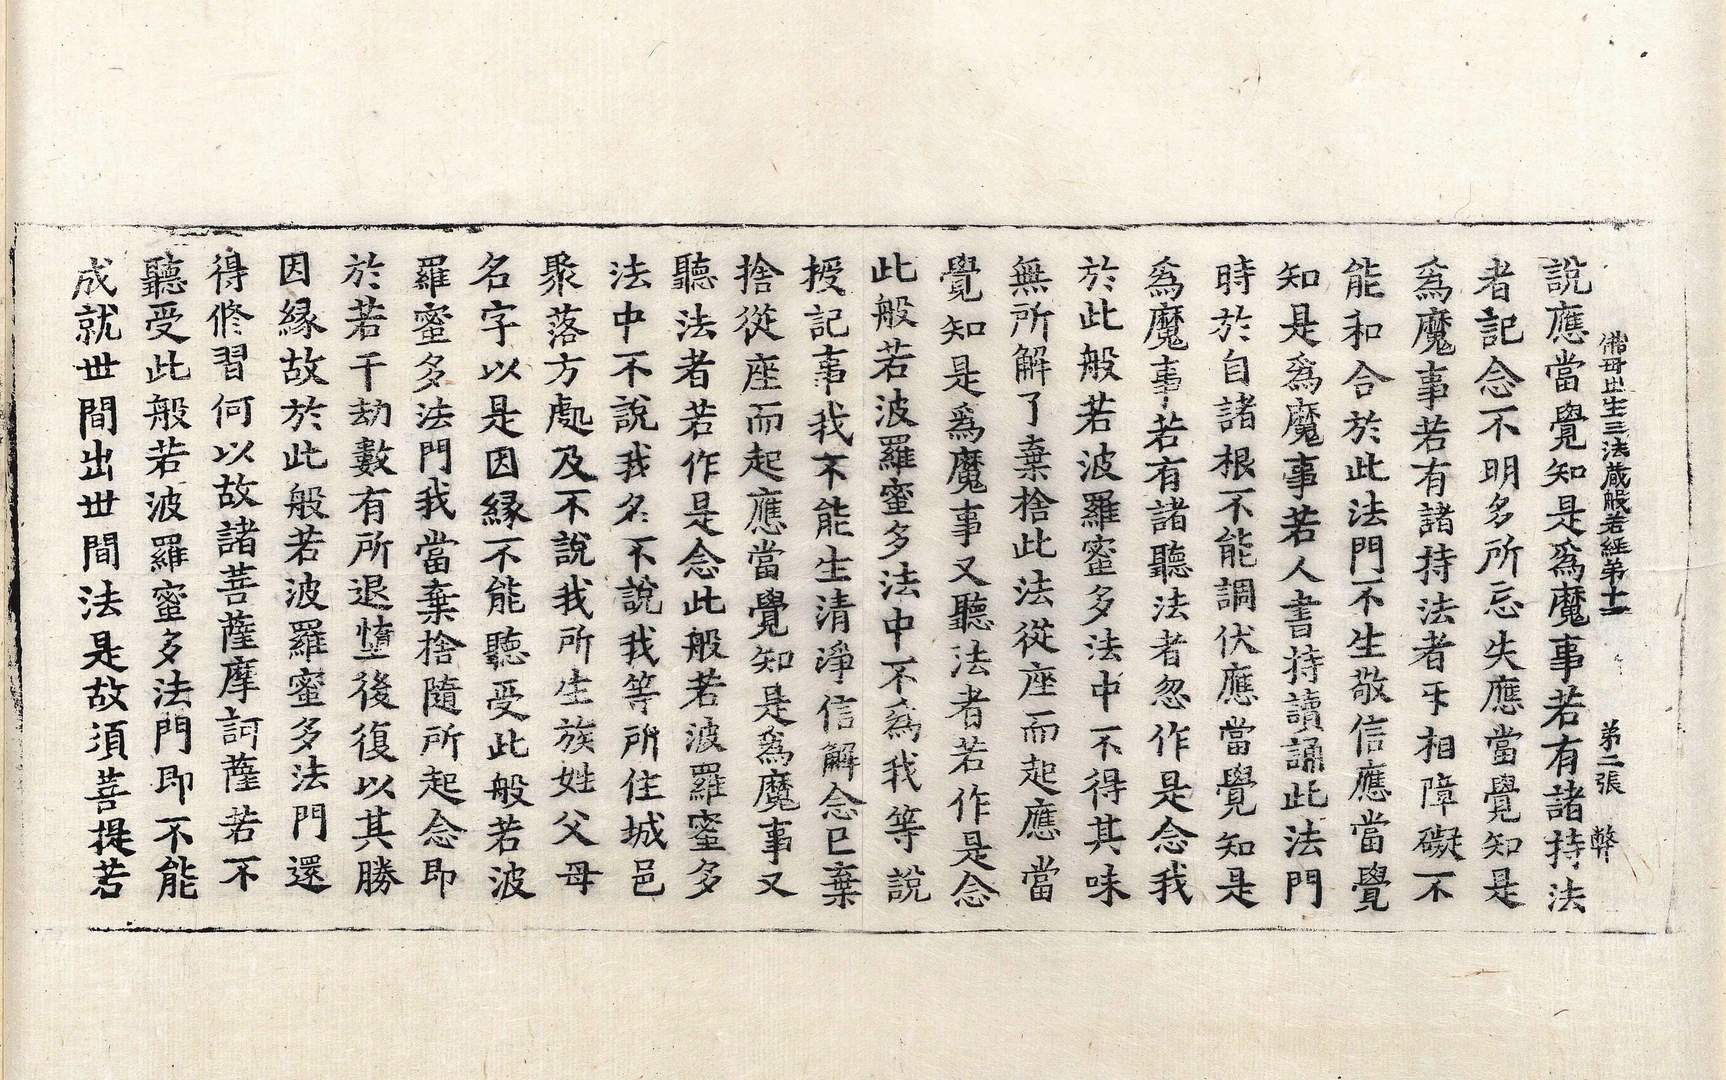 佛母出生三法藏般若經第十一　第二張　弊
說應當覺知是爲魔事若有諸持法
者記念不明多所忘失應當覺知是
爲魔事若有諸持法者互相障礙不
能和合於此法門不生敬信應當覺
知是爲魔事若人書持讀誦此法門
時於自諸根不能調伏應當覺知是
爲魔事若有諸聽法者忽作是念我
於此般若波羅蜜多法中不得其味
無所解了棄捨此法從座而起應當
覺知是爲魔事又聽法者若作是念
此般若波羅蜜多法中不爲我等說
授記事我不能生清淨信解念已棄
捨從座而起應當覺知是爲魔事又
聽法者若作是念此般若波羅蜜多
法中不說我名不說我等所住城邑
聚落方處及不說我所生族姓父母
名字以是因緣不能聽受此般若波
羅蜜多法門我當棄捨隨所起念即
於若干劫數有所退墮後復以其勝
因緣故於此般若波羅蜜多法門還
得修習何以故諸菩薩摩訶薩若不
聽受此般若波羅蜜多法門即不能
成就世間出世間法是故須菩提若